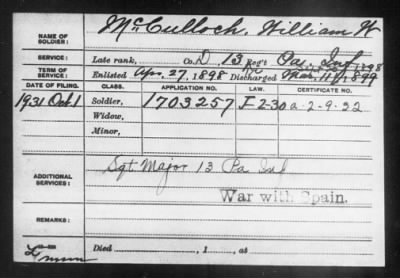 NAME OF SOLDIER: McCulloch, William W
SERVICE: Late rank, Co. D, 13 Reg't Pa. Inf 1898
TERM OF SERVICE: Enlisted Apr. 27, 1898 Discharged Mar. 11, 1899
DATE OF FILING. CLASS. APPLICATION NO. LAW. CERTIFICATE NO.
1931 Oct. 1 Soldier, 1703257 a-2-9-32
Widow,
Minor,
ADDITIONAL SERVICES: Sgt Major 13 Pa Inf
War with Spain.
REMARKS:
Died , 1 , at